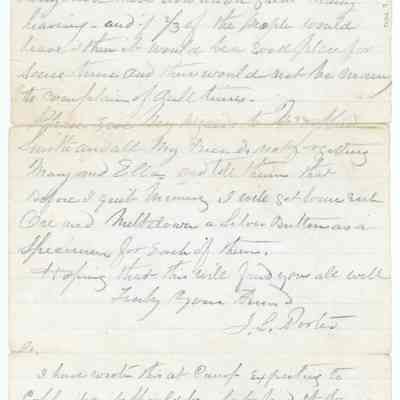 leaving - and if 2/3 of the people would
leave I think it would be a good place for
some time and there would not be many
to complain of dull times.
Please give my regards to
Smith and all my friends not forgetting
Mary and Ella, and tell them that
before I quit Mining I will get some rich
Ore and Melt down a Silver Button as a
Specimen for each of them.
Hoping that this will find you all well
Truly Your Friend
J. L. Porter
I have wrote this at Camp expecting to